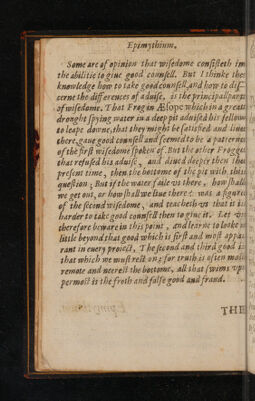 Epimythium.
Some are of opinion that wisedome consisteth in
the abilitie to giue good counsell. But I thinke the
knowledge how to take good counsell, and how to dis-
cerne the differences of aduise, is the principall part
of wisedome. That Frog in Æsope which in a great
drought spying water in a deep pit aduised his fellow
to leape downe, that they might be satisfied and liue
there, gaue good counsell and seemed to be a patterne
of the first wisedome spoken of. But the other Frogge
that refused his aduise, and diued deeper then the
present time, then the bottome of the pit with this
question; But if the water faile vs there, how shall
we get out, or how shall we liue there? was a figure
of the second wisedome, and teacheth vs that it is
harder to take good counsell then to giue it. Let vs
therefore beware in this point, and learne to looke
little beyond that good which is first and most appa-
rant in euery proiect. The second and third good is
that which we must rest on; for truth is often most
remote and neerest the bottome, all that swims vp
permost is the froth and false good and fraud.
THE